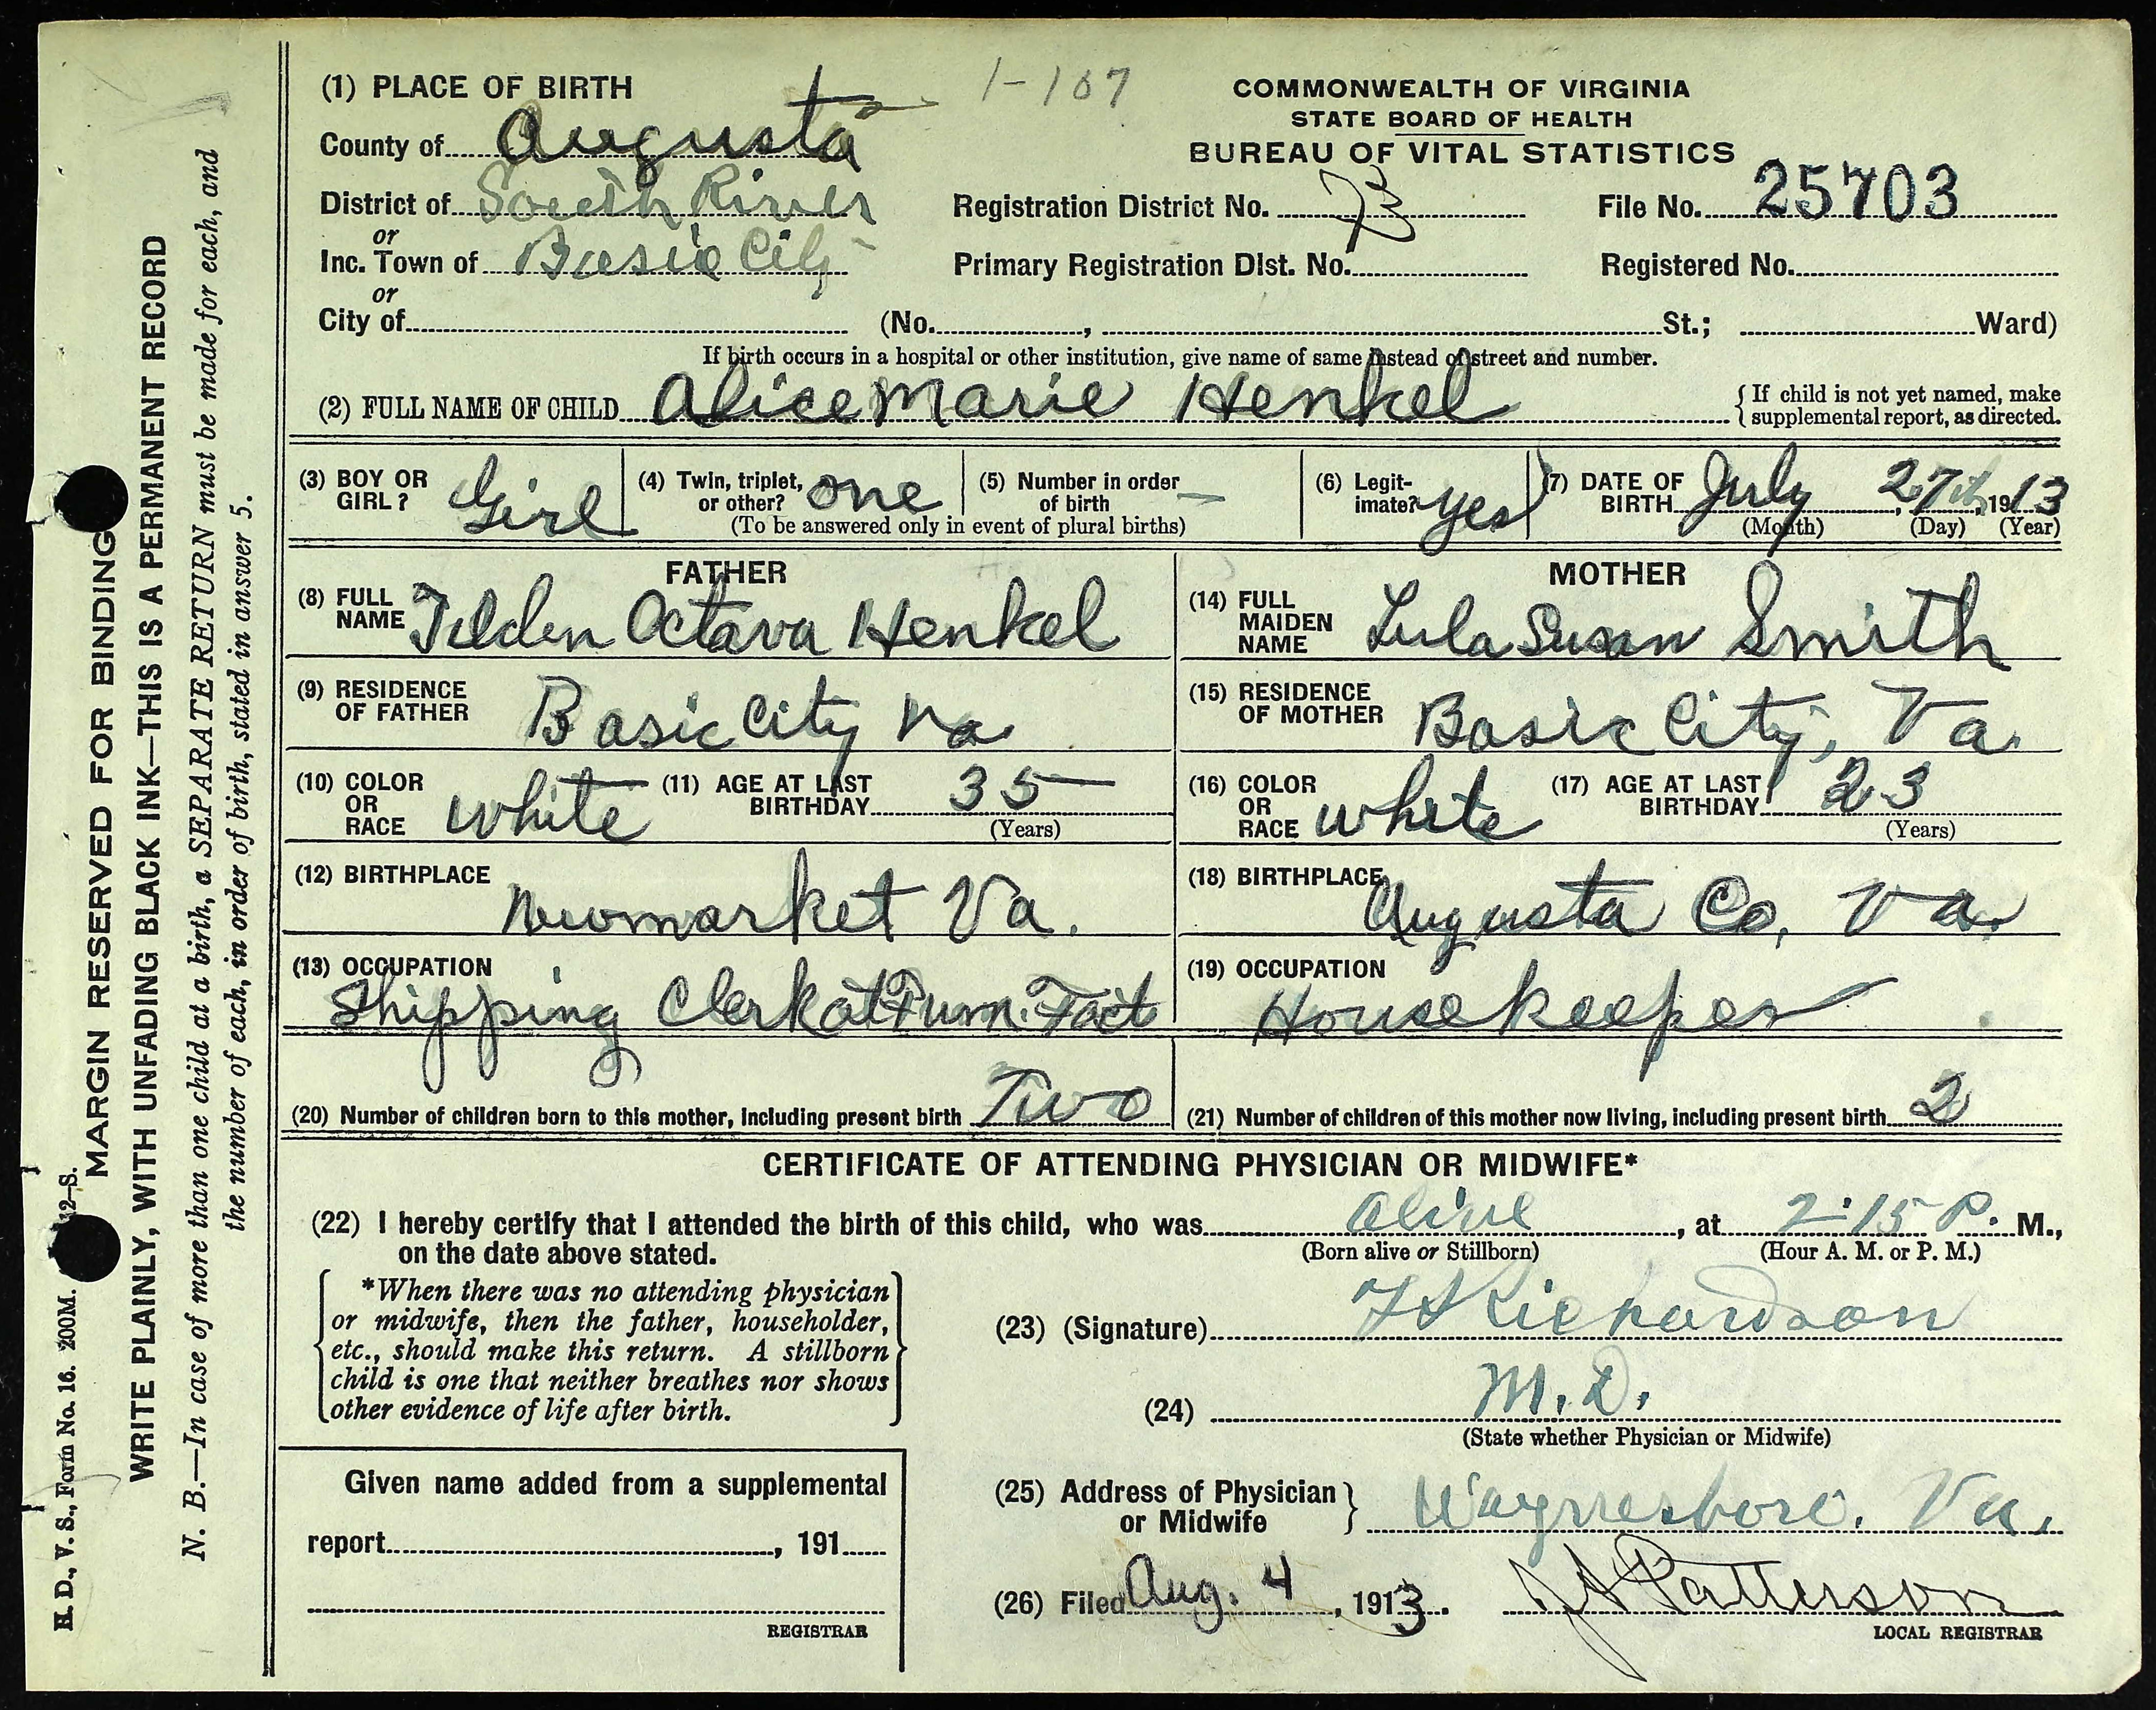 1-107
(1) PLACE OF BIRTH
County of Augusta
District of South River
or
Inc. Town of Basic City
or
City of (No. , St.; Ward)
COMMONWEALTH OF VIRGINIA
STATE BOARD OF HEALTH
BUREAU OF VITAL STATISTICS
Registration District No. File No. 25703
Primary Registration Dist. No. Registered No.
If birth occurs in a hospital or other institution, give name of same instead of street and number.
(2) FULL NAME OF CHILD Alice Marie Henkel { If child is not yet named, make supplemental report, as directed.
(3) BOY OR GIRL? Girl
(4) Twin, triplet, or other? one
(5) Number in order of birth —
(To be answered only in event of plural births)
(6) Legitimate? yes
(7) DATE OF BIRTH July 27th, 1913
(Month) (Day) (Year)
FATHER
(8) FULL NAME Tilden Octava Henkel
(9) RESIDENCE OF FATHER Basic City Va
(10) COLOR OR RACE white (11) AGE AT LAST BIRTHDAY 35
(Years)
(12) BIRTHPLACE Newmarket Va.
(13) OCCUPATION
Shipping Clerk at Furn. Fact
MOTHER
(14) FULL MAIDEN NAME Lula Susan Smith
(15) RESIDENCE OF MOTHER Basic City, Va.
(16) COLOR OR RACE white (17) AGE AT LAST BIRTHDAY 23
(Years)
(18) BIRTHPLACE Augusta Co, Va.
(19) OCCUPATION
Housekeeper
(20) Number of children born to this mother, including present birth Two
(21) Number of children of this mother now living, including present birth 2
CERTIFICATE OF ATTENDING PHYSICIAN OR MIDWIFE*
(22) I hereby certify that I attended the birth of this child, who was alive, at 2:15 P. M.,
on the date above stated. (Born alive or Stillborn) (Hour A. M. or P. M.)
*When there was no attending physician
or midwife, then the father, householder,
etc., should make this return. A stillborn
child is one that neither breathes nor shows
other evidence of life after birth.
(23) (Signature) Richardson
(24) M. D.
(State whether Physician or Midwife)
Given name added from a supplemental
report , 191
REGISTRAR
(25) Address of Physician or Midwife } Waynesboro. Va.
(26) Filed Aug. 4, 1913. Patterson
LOCAL REGISTRAR
MARGIN RESERVED FOR BINDING
WRITE PLAINLY, WITH UNFADING BLACK INK—THIS IS A PERMANENT RECORD
N. B.—In case of more than one child at a birth, a SEPARATE RETURN must be made for each, and
the number of each, in order of birth, stated in answer 5.
H. D., V. S., Form No. 16. 200M. 12-S.